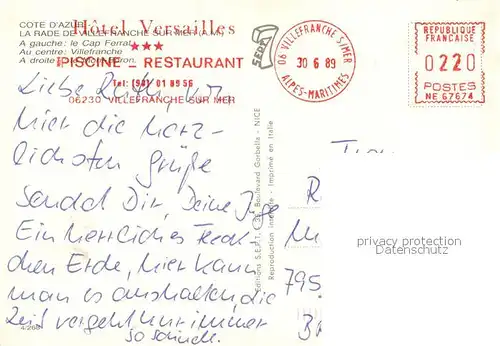 COTE D'AZUR
LA RADE DE VILLEFRANCHE SUR MER (A.M.)
A gauche: le Cap Ferrat
Au centre: Villefranche
A droite:
Hôtel Versailles
PISCINE - RESTAURANT
Tel: (93) 01 89 56
06230 VILLEFRANCHE SUR MER
SEPT
06 VILLEFRANCHE S/MER
30 6 89
ALPES-MARITIMES
REPUBLIQUE
FRANÇAISE
0220
POSTES
NE 67674
Liebe Ruth,
Hier die herz-
lichsten Grüße
sendet Dir, Deine Inge
Ein herrliches Fleck-
chen Erde, hier kann
man es aushalten, die
Zeit vergeht nur immer
so schnell.
4/268
Editions S.E.P.T., Boulevard Gorbella - NICE
Reproduction interdite - Imprimé en Italie
795
privacy protection
Datenschutz